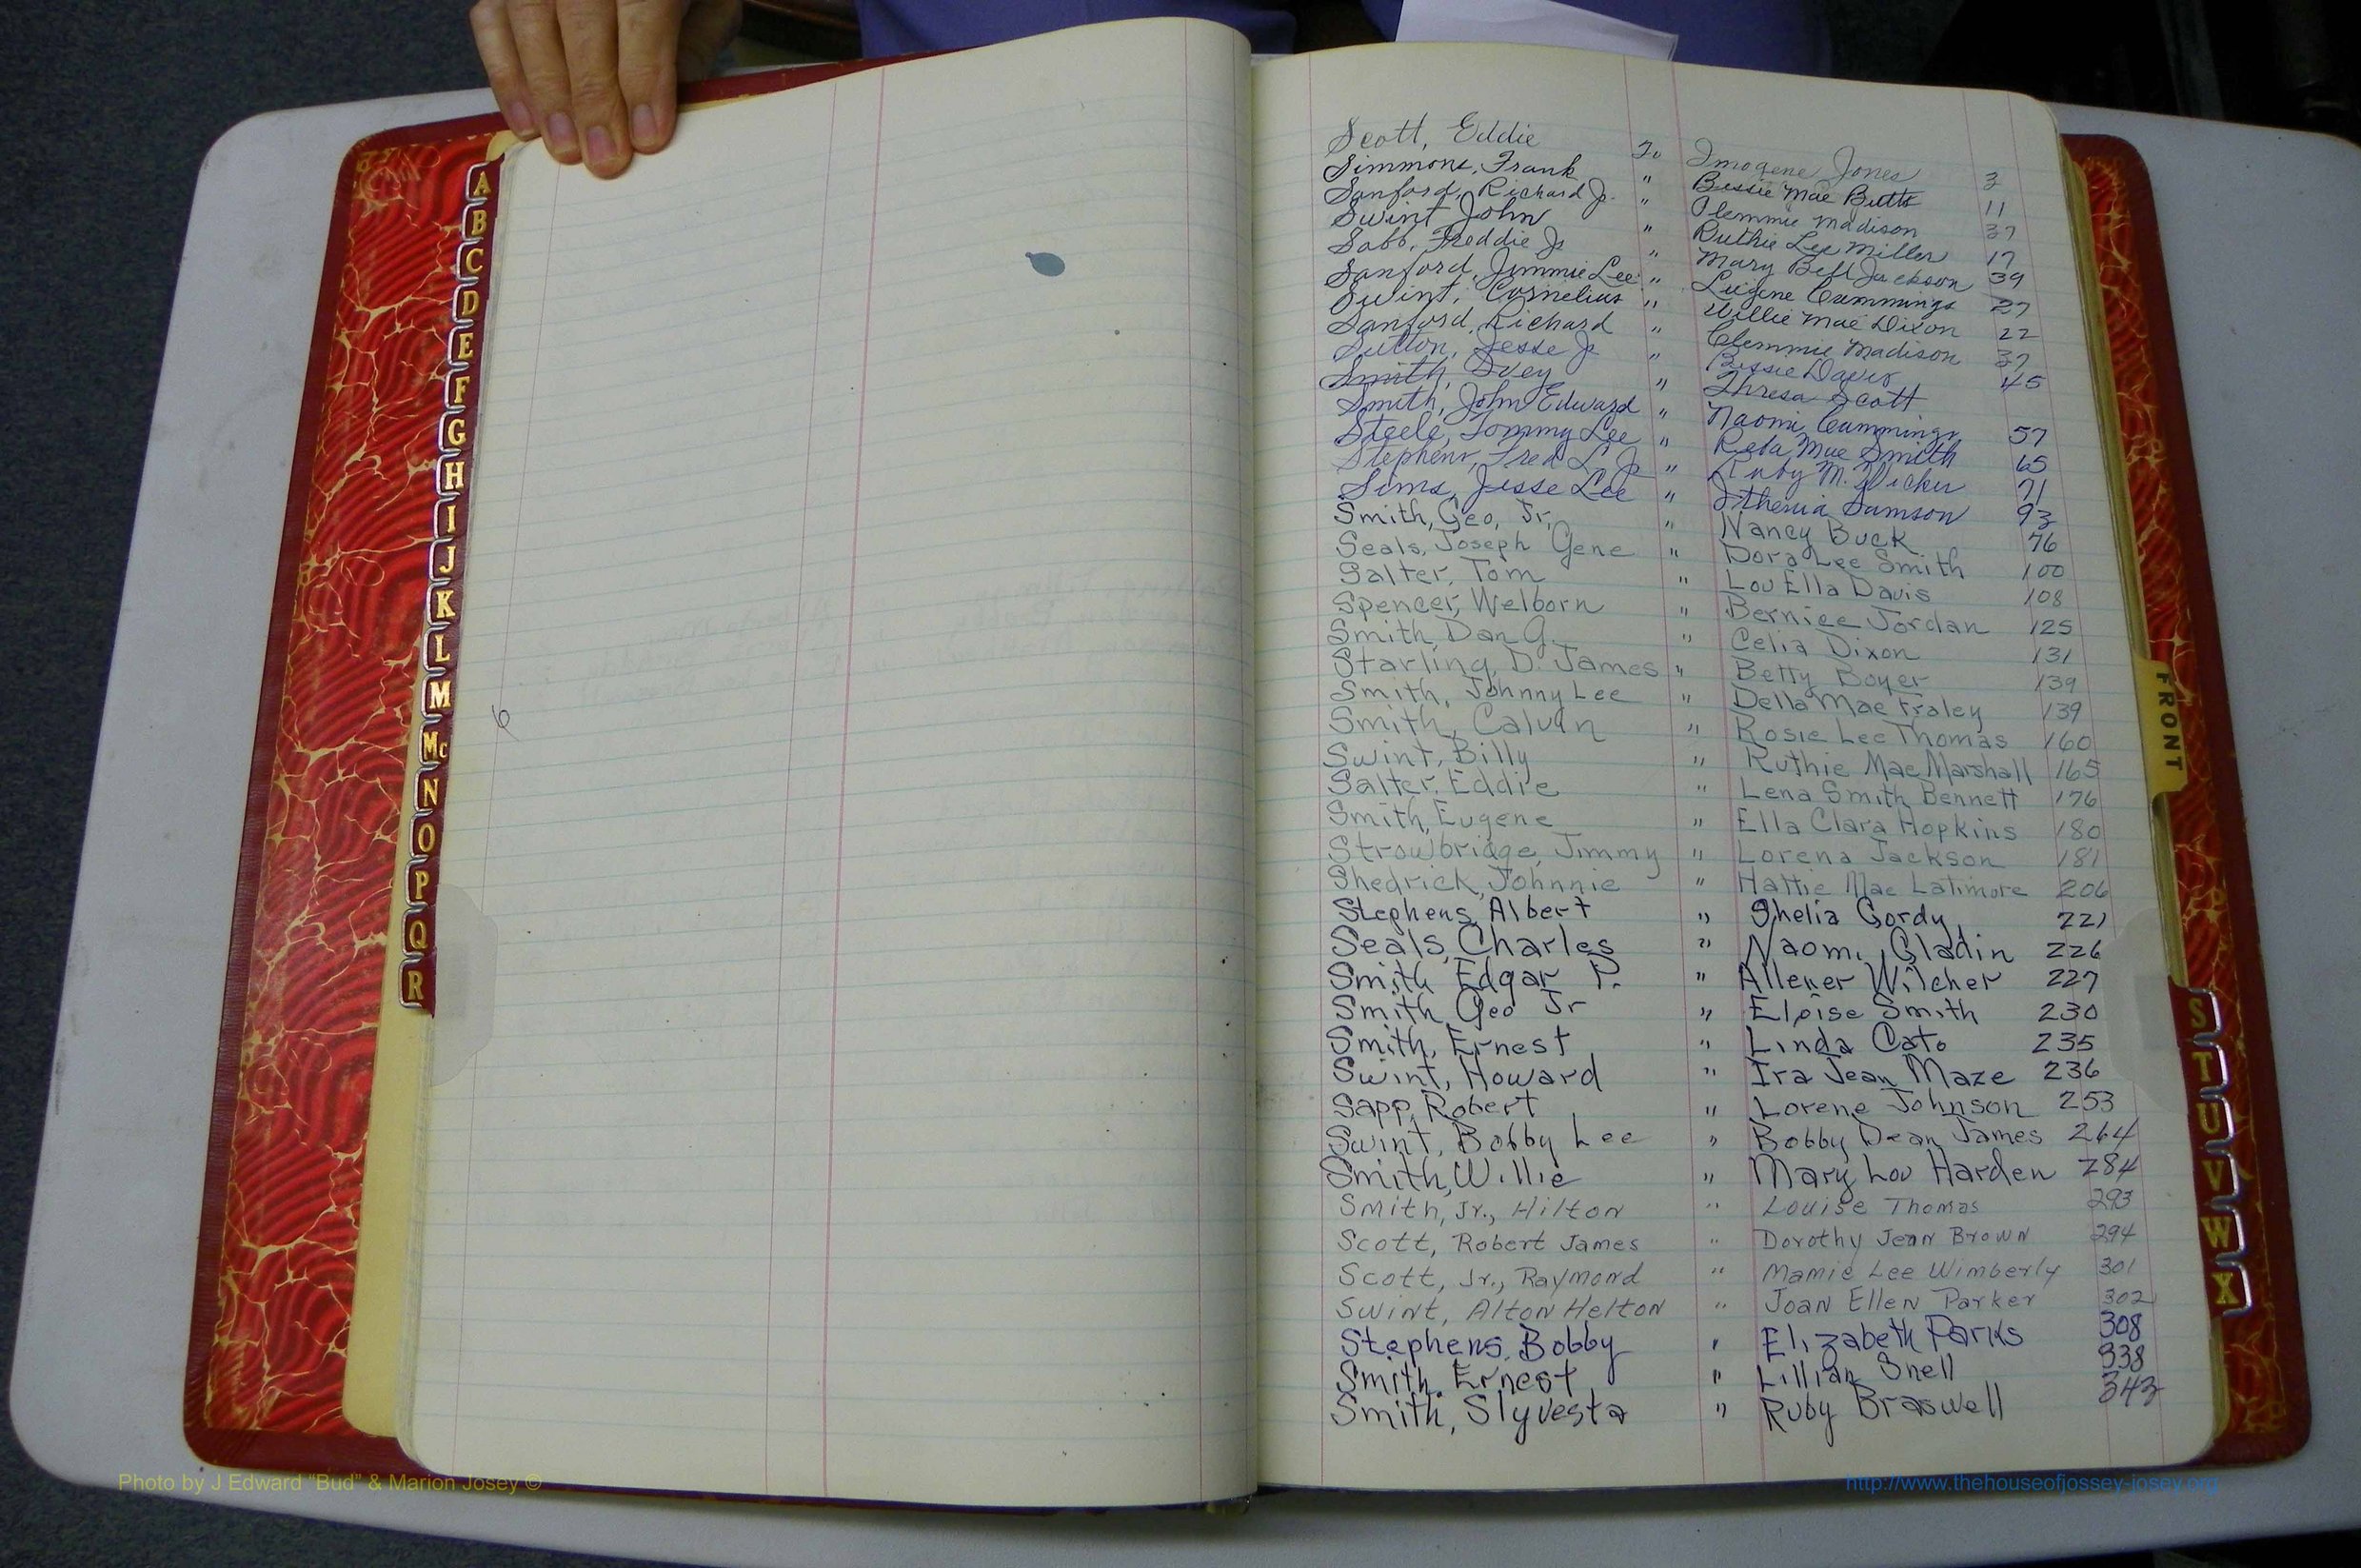 A
B
C
D
E
F
G
H
I
J
K
L
M
Mc
N
O
P
Q
R
6
Scott, Eddie To Imogene Jones 3
Simmons, Frank " Bessie Mae Butts 11
Sanford, Richard Jr. " Clemmie Madison 37
Swint John " Ruthie Lee Miller 17
Sabb, Freddie Jr " Mary Bell Jackson 39
Sanford, Jimmie Lee " Eugene Cummings 27
Swint, Cornelius " Willie Mae Dixon 22
Sanford, Richard " Clemmie Madison 37
Sutton, Jesse Jr " Bessie Davis 45
Smith, Ivey " Thresa Scott
Smith, John Edward " Naomi Cummings 57
Steele, Tommy Lee " Reba Mae Smith 65
Stephens, Fred L. Jr " Ruby M. Wicker 71
Sims, Jesse Lee " Samson 93
Smith, Geo, Jr. " Nancy Buck 76
Seals, Joseph Gene " Dora Lee Smith 100
Salter, Tom " Lou Ella Davis 108
Spencer, Welborn " Bernice Jordan 125
Smith, Dan G. " Celia Dixon 131
Starling, D. James " Betty Boyer 139
Smith, Johnny Lee " Della Mae Fraley 139
Smith, Calvin " Rosie Lee Thomas 160
Swint, Billy " Ruthie Mae Marshall 165
Salter, Eddie " Lena Smith Bennett 176
Smith, Eugene " Ella Clara Hopkins 180
Strowbridge, Jimmy " Lorena Jackson 181
Shedrick, Johnnie " Hattie Mae Latimore 206
Stephens, Albert " Shelia Gordy 221
Seals, Charles " Naomi Gladin 226
Smith Edgar P. " Allener Wilcher 227
Smith Geo Jr " Eloise Smith 230
Smith, Ernest " Linda Cato 235
Swint, Howard " Ira Jean Maze 236
Sapp, Robert " Lorene Johnson 253
Swint, Bobby Lee " Bobby Dean James 264
Smith, Willie " Mary Lou Harden 284
Smith, Jr., Hilton " Louise Thomas 293
Scott, Robert James " Dorothy Jean Brown 294
Scott, Jr., Raymond " Mamie Lee Wimberly 301
Swint, Alton Helton " Joan Ellen Parker 302
Stephens, Bobby " Elizabeth Parks 308
Smith, Ernest " Lillian Snell 338
Smith, Slyvesta " Ruby Braswell 343
FRONT
S
T
U
V
W
X
Photo by J Edward “Bud” & Marion Josey ©
http://www.thehouseofjossey-josey.org